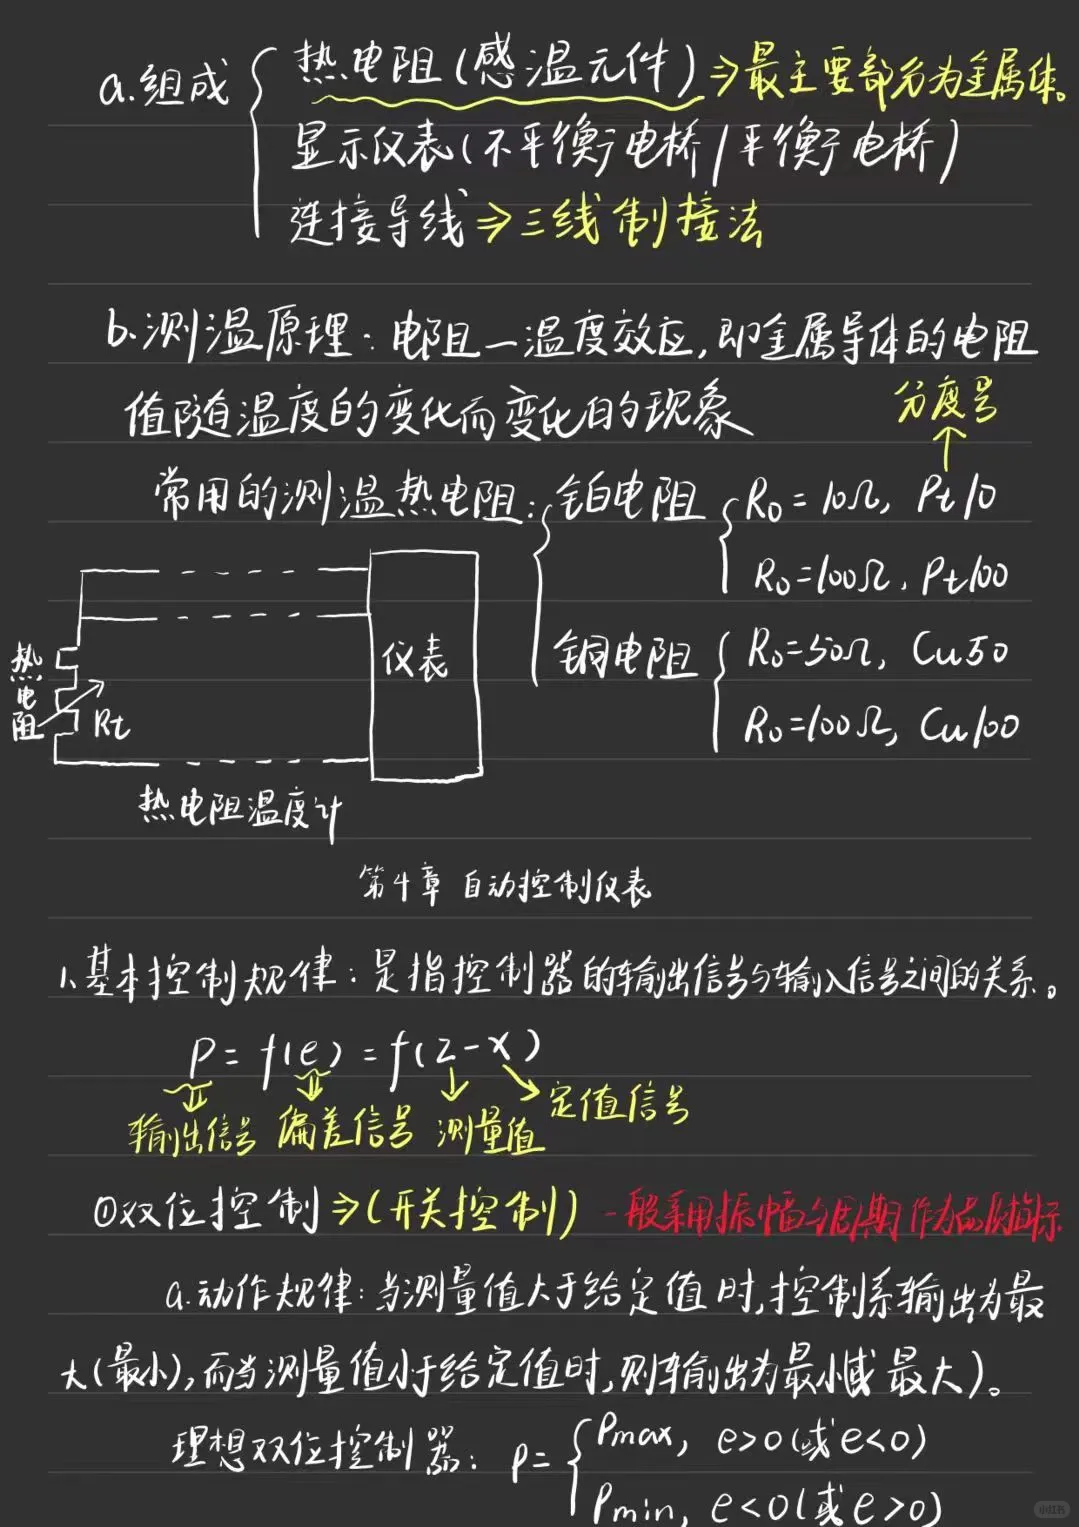 a.组成
热电阻(感温元件)⇒最主要部分为金属体。
显示仪表(不平衡电桥/平衡电桥)
连接导线⇒三线制接法
b.测温原理:电阻—温度效应,即金属导体的电阻
值随温度的变化而变化的现象
分度号
常用的测温热电阻:
铂电阻
R₀=10Ω, Pt10
R₀=100Ω, Pt100
铜电阻
R₀=50Ω, Cu50
R₀=100Ω, Cu100
热电阻
Rt
仪表
热电阻温度计
第4章 自动控制仪表
1.基本控制规律:是指控制器的输出信号与输入信号之间的关系。
P=f(e)=f(z-x)
输出信号 偏差信号 测量值 定值信号
①双位控制⇒(开关控制) 一般采用振幅与周期作为品质指标
a.动作规律:当测量值大于给定值时,控制系输出为最
大(最小),而当测量值小于给定值时,则输出为最小(或最大)。
理想双位控制器: P=
Pmax, e>0(或e<0)
Pmin, e<0(或e>0)
小红书